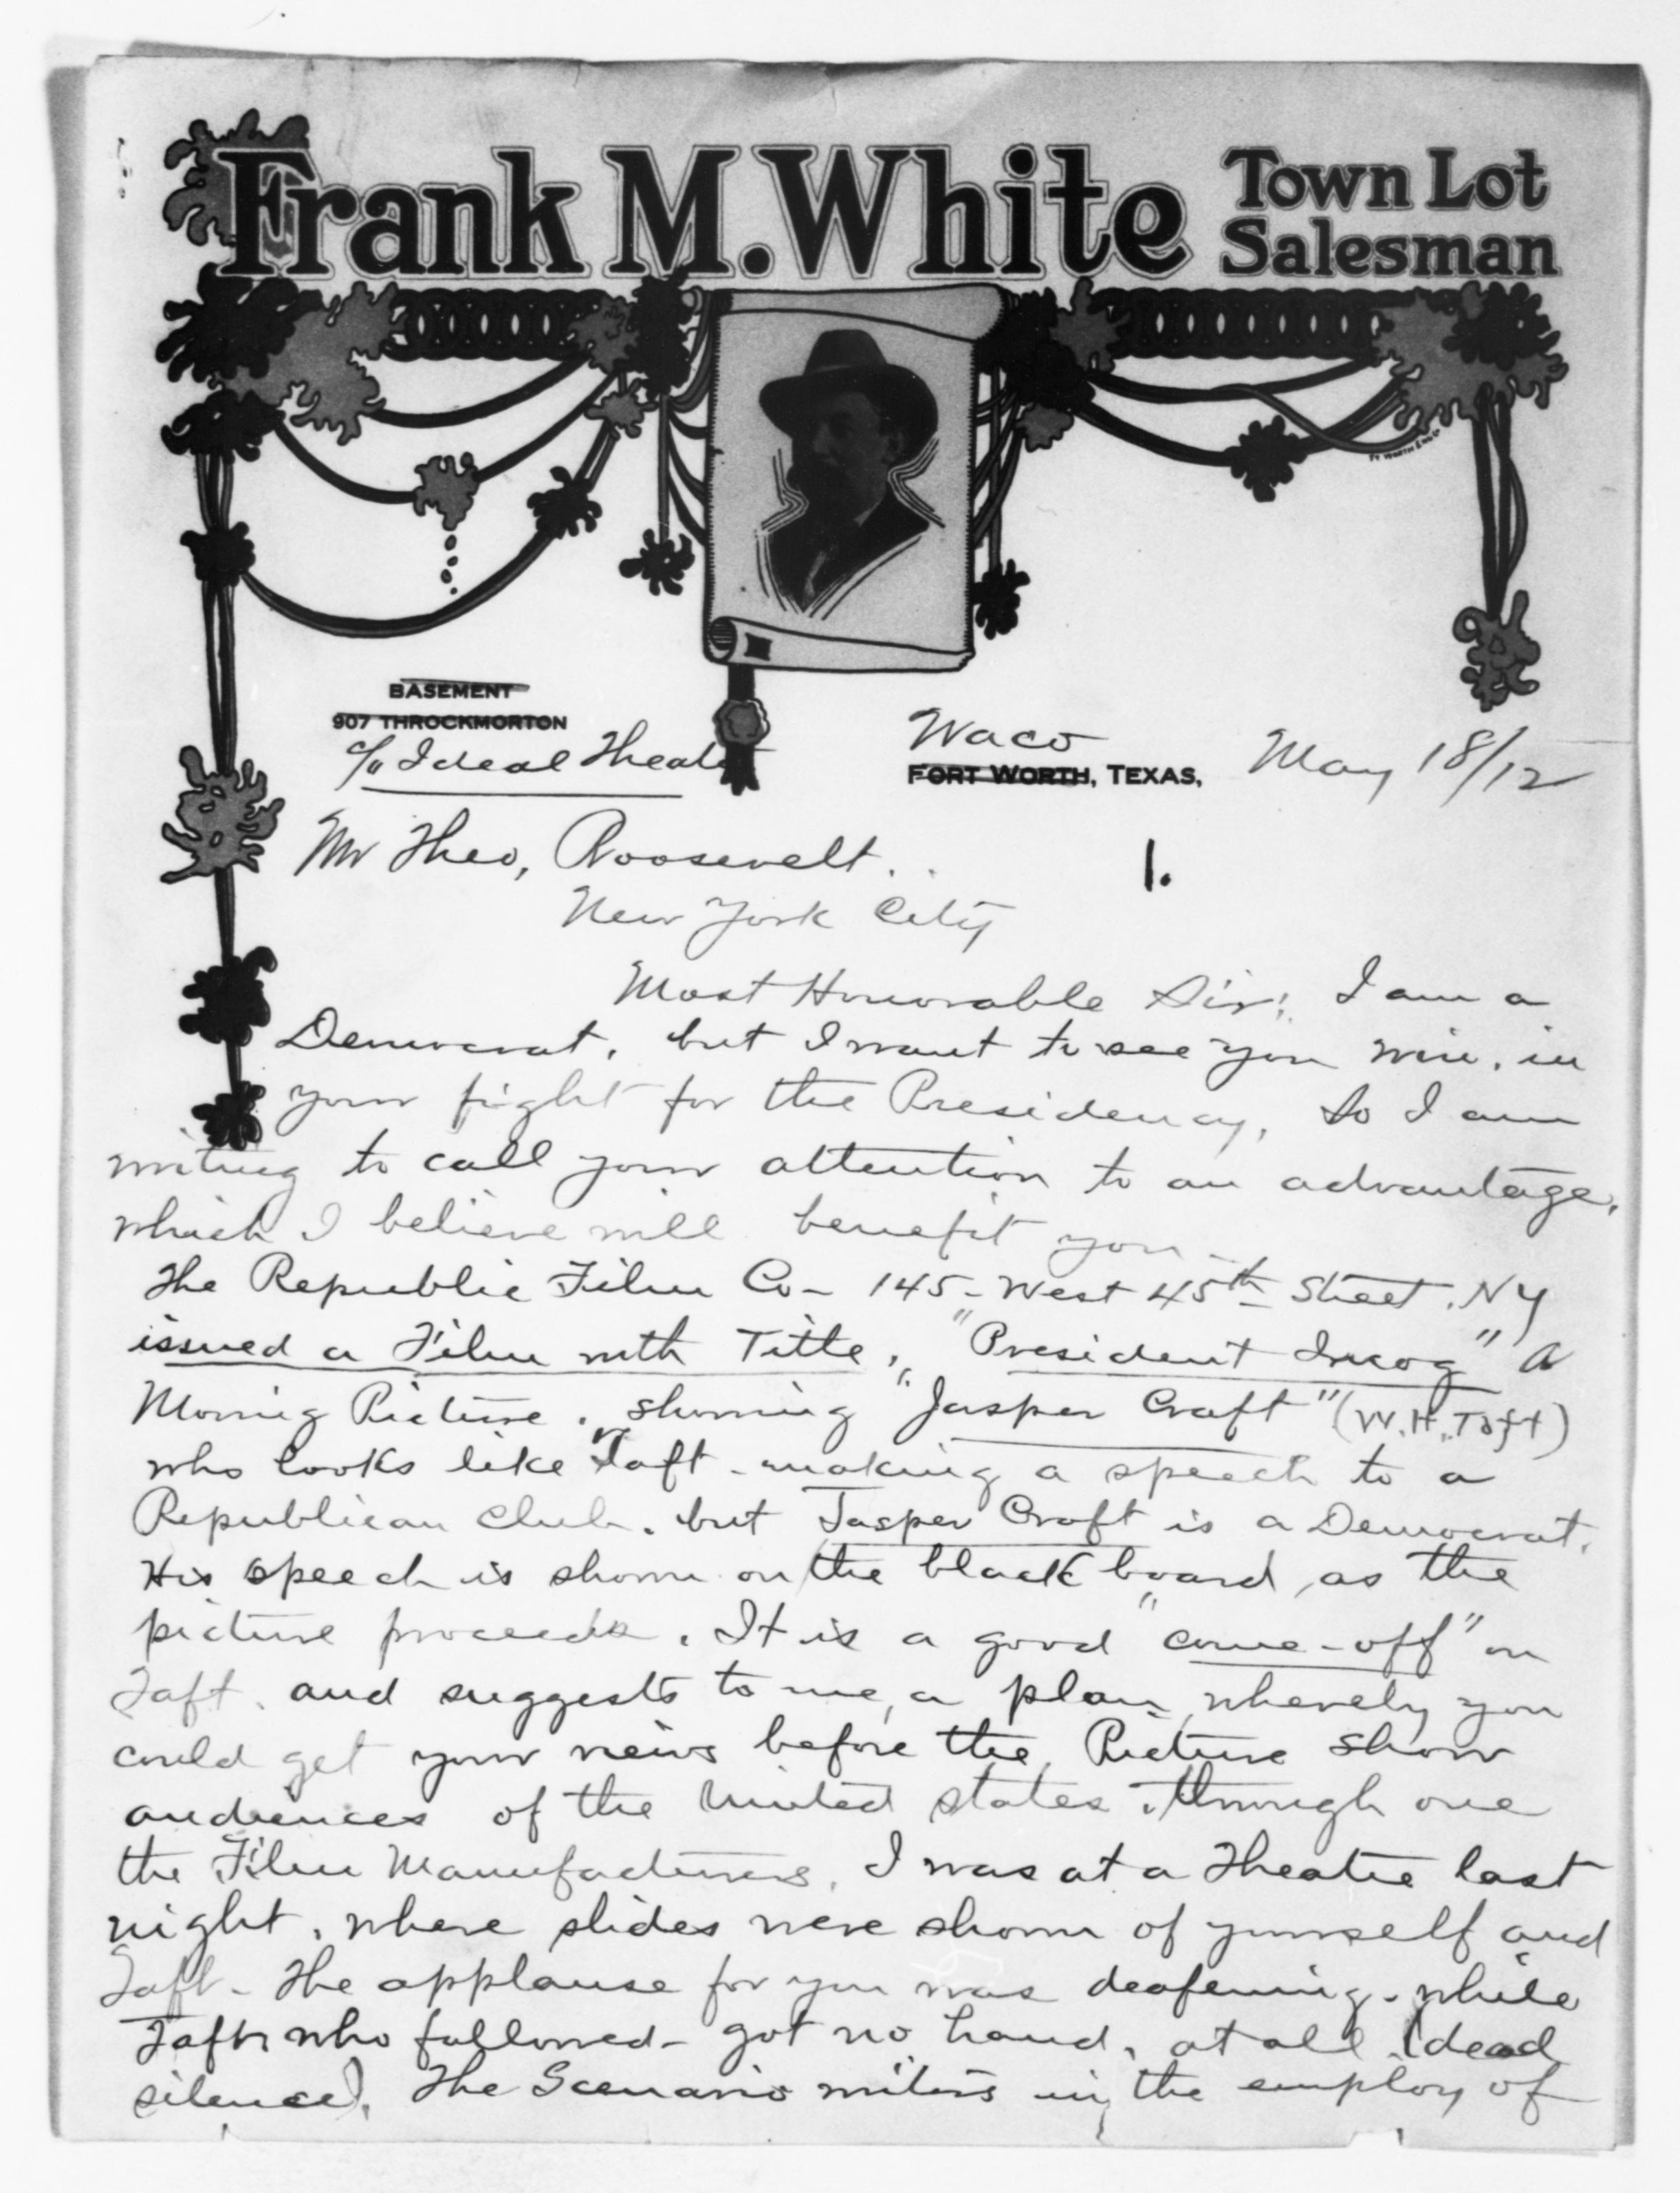 Frank M. White Town Lot
Salesman
BASEMENT
907 THROCKMORTON
c/o Ideal Theater
Waco
FORT WORTH, TEXAS, May 18/12
Mr Theo, Roosevelt.
1.
New York City
Most Honorable Sir; I am a
Democrat, but I want to see you win, in
your fight for the Presidency, So I am
writing to call your attention to an advantage,
which I believe will benefit you -
The Republic Film Co - 145 - West 45th Street. NY
issued a Film with Title, "President Incog" A
Moving Picture, showing "Jasper Craft" (W.H. Taft)
who looks like Taft - making a speech to a
Republican Club. but Jasper Craft is a Democrat.
His speech is shown on the black board, as the
picture proceeds. It is a good "come-off" on
Taft. and suggests to me, a plan whereby you
could get your views before the Picture Show
audiences of the United States. through one
the Film Manufacturers. I was at a Theatre last
night, where slides were shown of yourself and
Taft - The applause for you was deafening - while
Taft who followed - got no hand, at all (dead
silence). The Scenario writers in the employ of